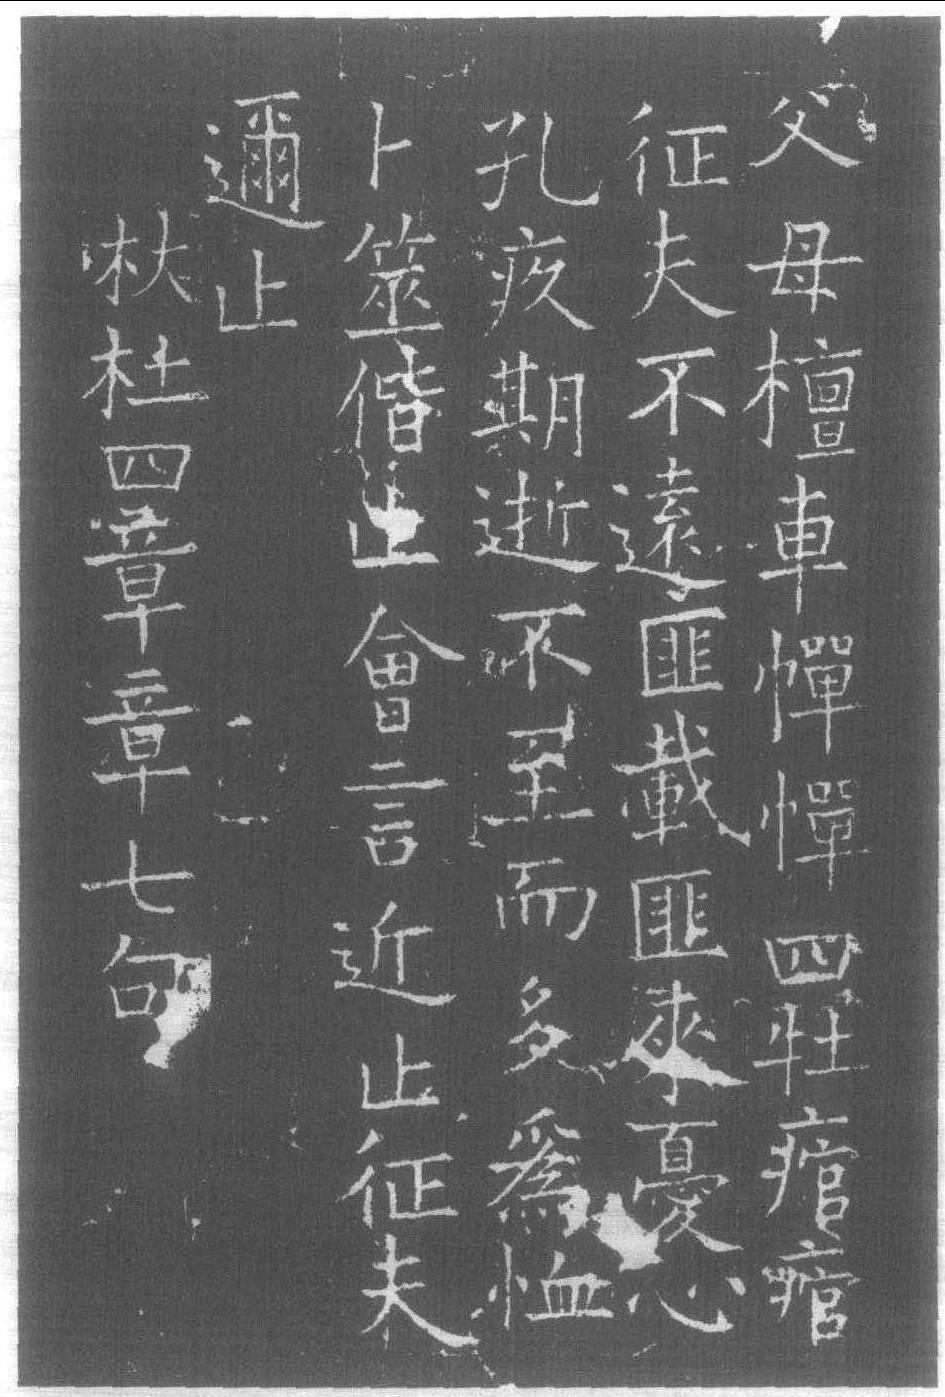 父母檀車幝幝四牡痯痯
征夫不遠匪載匪來憂心
孔疚期逝不至而多為恤
卜筮偕止會言近止征夫
邇止
杕杜四章章七句